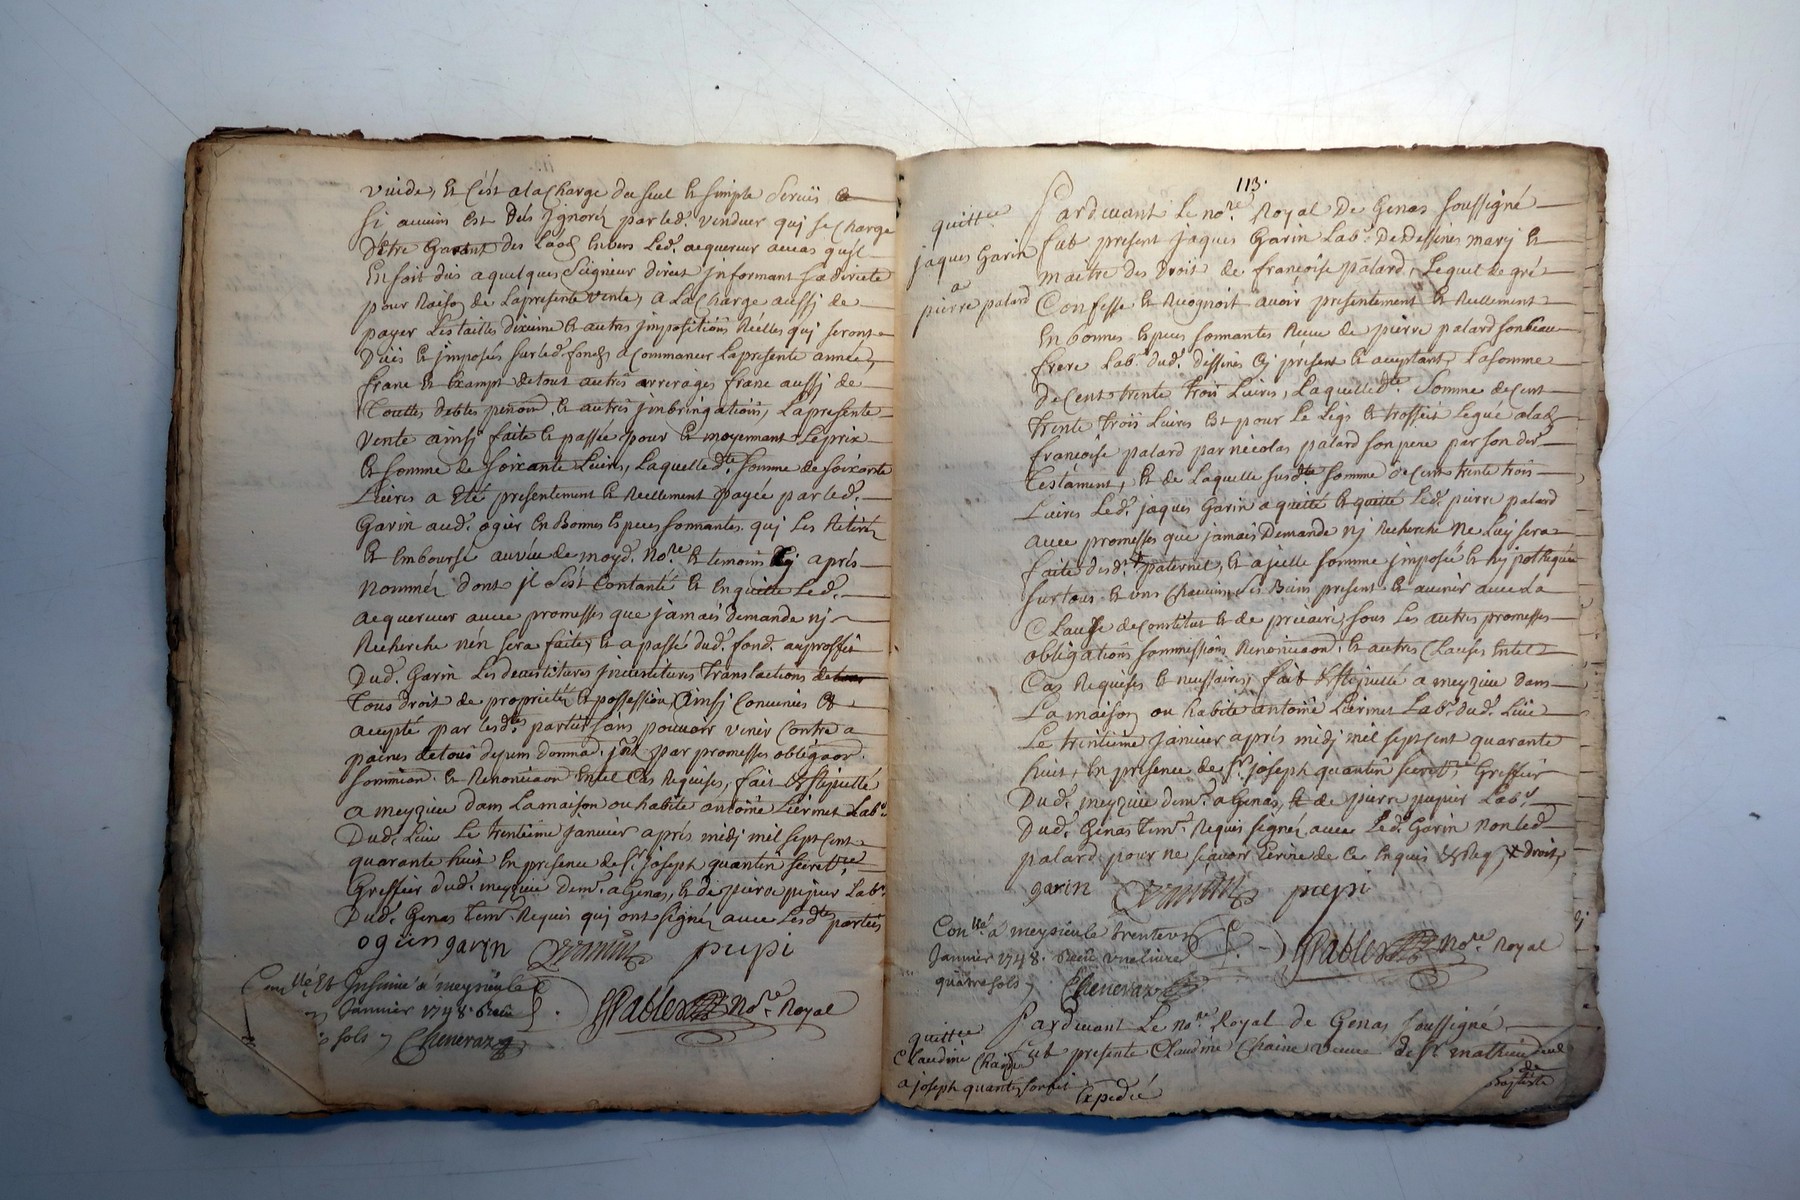 vuide, et c'est a la charge du seul et simple servis
si aucuns est deüs ignorés par led. vendeur qui se charge
d'être garant des laods envers led. acquereur au cas qu'il
en soit dû a quelques seigneur direct informant sa directe
pour raison de la presente vente, a la charge aussi de
payer les tailles dixieme et autres impositions réelles qui seront
dües et imposés sur led. fonds a commancer la presente année,
franc et exampt de tout autres arrerages franc aussi de
touttes debtes pension. et autres imbringations, la presente
vente ainsi faite et passée pour et moyennant le prix
et somme de soixante livres, laquelle dte. somme de soixante
livres a eté presentement et reellement payée par led.
Garin aud. ogier en bonnes especes sonnantes qui les a retirés
et emboursé au vüe de moyd. nore. et temoins cy après
nommés dont il s'est contanté et en quitte led.
acquereur avec promesses que jamais demande ny
recherche n'en sera faite, et a passé dud. fond. au proffit
dud. Garin les devestitures investitures translactions
tous droit de proprieté et possession, ainsi convenües et
accepté par lesdtes parties sans pouvoir venir contre a
paines de tous depens dommas. jnts par promesses obligaon.
sommion. et renonciaon en tel cas requises, fait et stipullé
a meyzieu dans la maison ou habite antoine Liermet Labr.
dud. lieu le trentieme janvier après midi mil sept cent
quarante huit en presence de sr. joseph quantin secretre.
Greffier dud. meyzieu demt. a Genas, et de pierre pupier Labr.
dud. Genas temt. requis qui ont signés avec lesdtes parties
garin pupi
Pablex nore. Royal
Conllé et Insinué a meysieu le
Janvier 1748. reçu
sols Cheneraz
113.
quittce
jaques Garin
a
pierre palard
Pardevant le nore. Royal de Genas soussigné
fut present jaques Garin Labr. de dessines mary et
maitre des droit de françoise palard, lequel de gré
confesse et recognoit avoir presentement et reellement
en bonnes especes sonnantes receu de pierre palard son beau
frere Labr. dud. dessines cy présent et acceptant, la somme
de cent trente trois livres, laquelle dte. somme de cent
trente trois livres est pour le legs et trosseit legué a lad.
françoise palard par nicolas palard son pere par son der.
testament, et de laquelle susdte somme de cent trente trois
livres led. jaques Garin a quitté et quitte led. pierre palard
avec promesses que jamais demande ni recherche ne luy sera
faite desd. paternel, et a jcelle somme imposée et hypothequée
sur tous et uns chacuns ses biens present et avenir avec la
clause de constitut et de precaire, sous les autres promesses
obligations sommissions renonciaon. et autres clauses en tel
cas requises et necessaires, fait et stipullé a meyzieu dans
la maison ou habite antoine Liermet Labr. dud. lieu
le trentieme janvier après midi mil sept cent quarante
huit, en presence de sr. joseph quantin secretre. Greffier
dud. meyzieu demt. a Genas, et de pierre pupier Labr.
dud. Genas temt. requis signés avec led. Garin non led.
palard pour ne sçavoir ecrire de ce enquis et req. droit,
garin pupi
Conllé a meysieu le trente
Janvier 1748. reçu une livre
quatre sols, Cheneraz
Pablex nore. Royal
quittce
Claudine Chaine
a joseph quantin
Pardevant le nore. Royal de Genas soussigné
fut presente Claudine Chaine veuve de sr. mathieu
Baptiste
Expedié